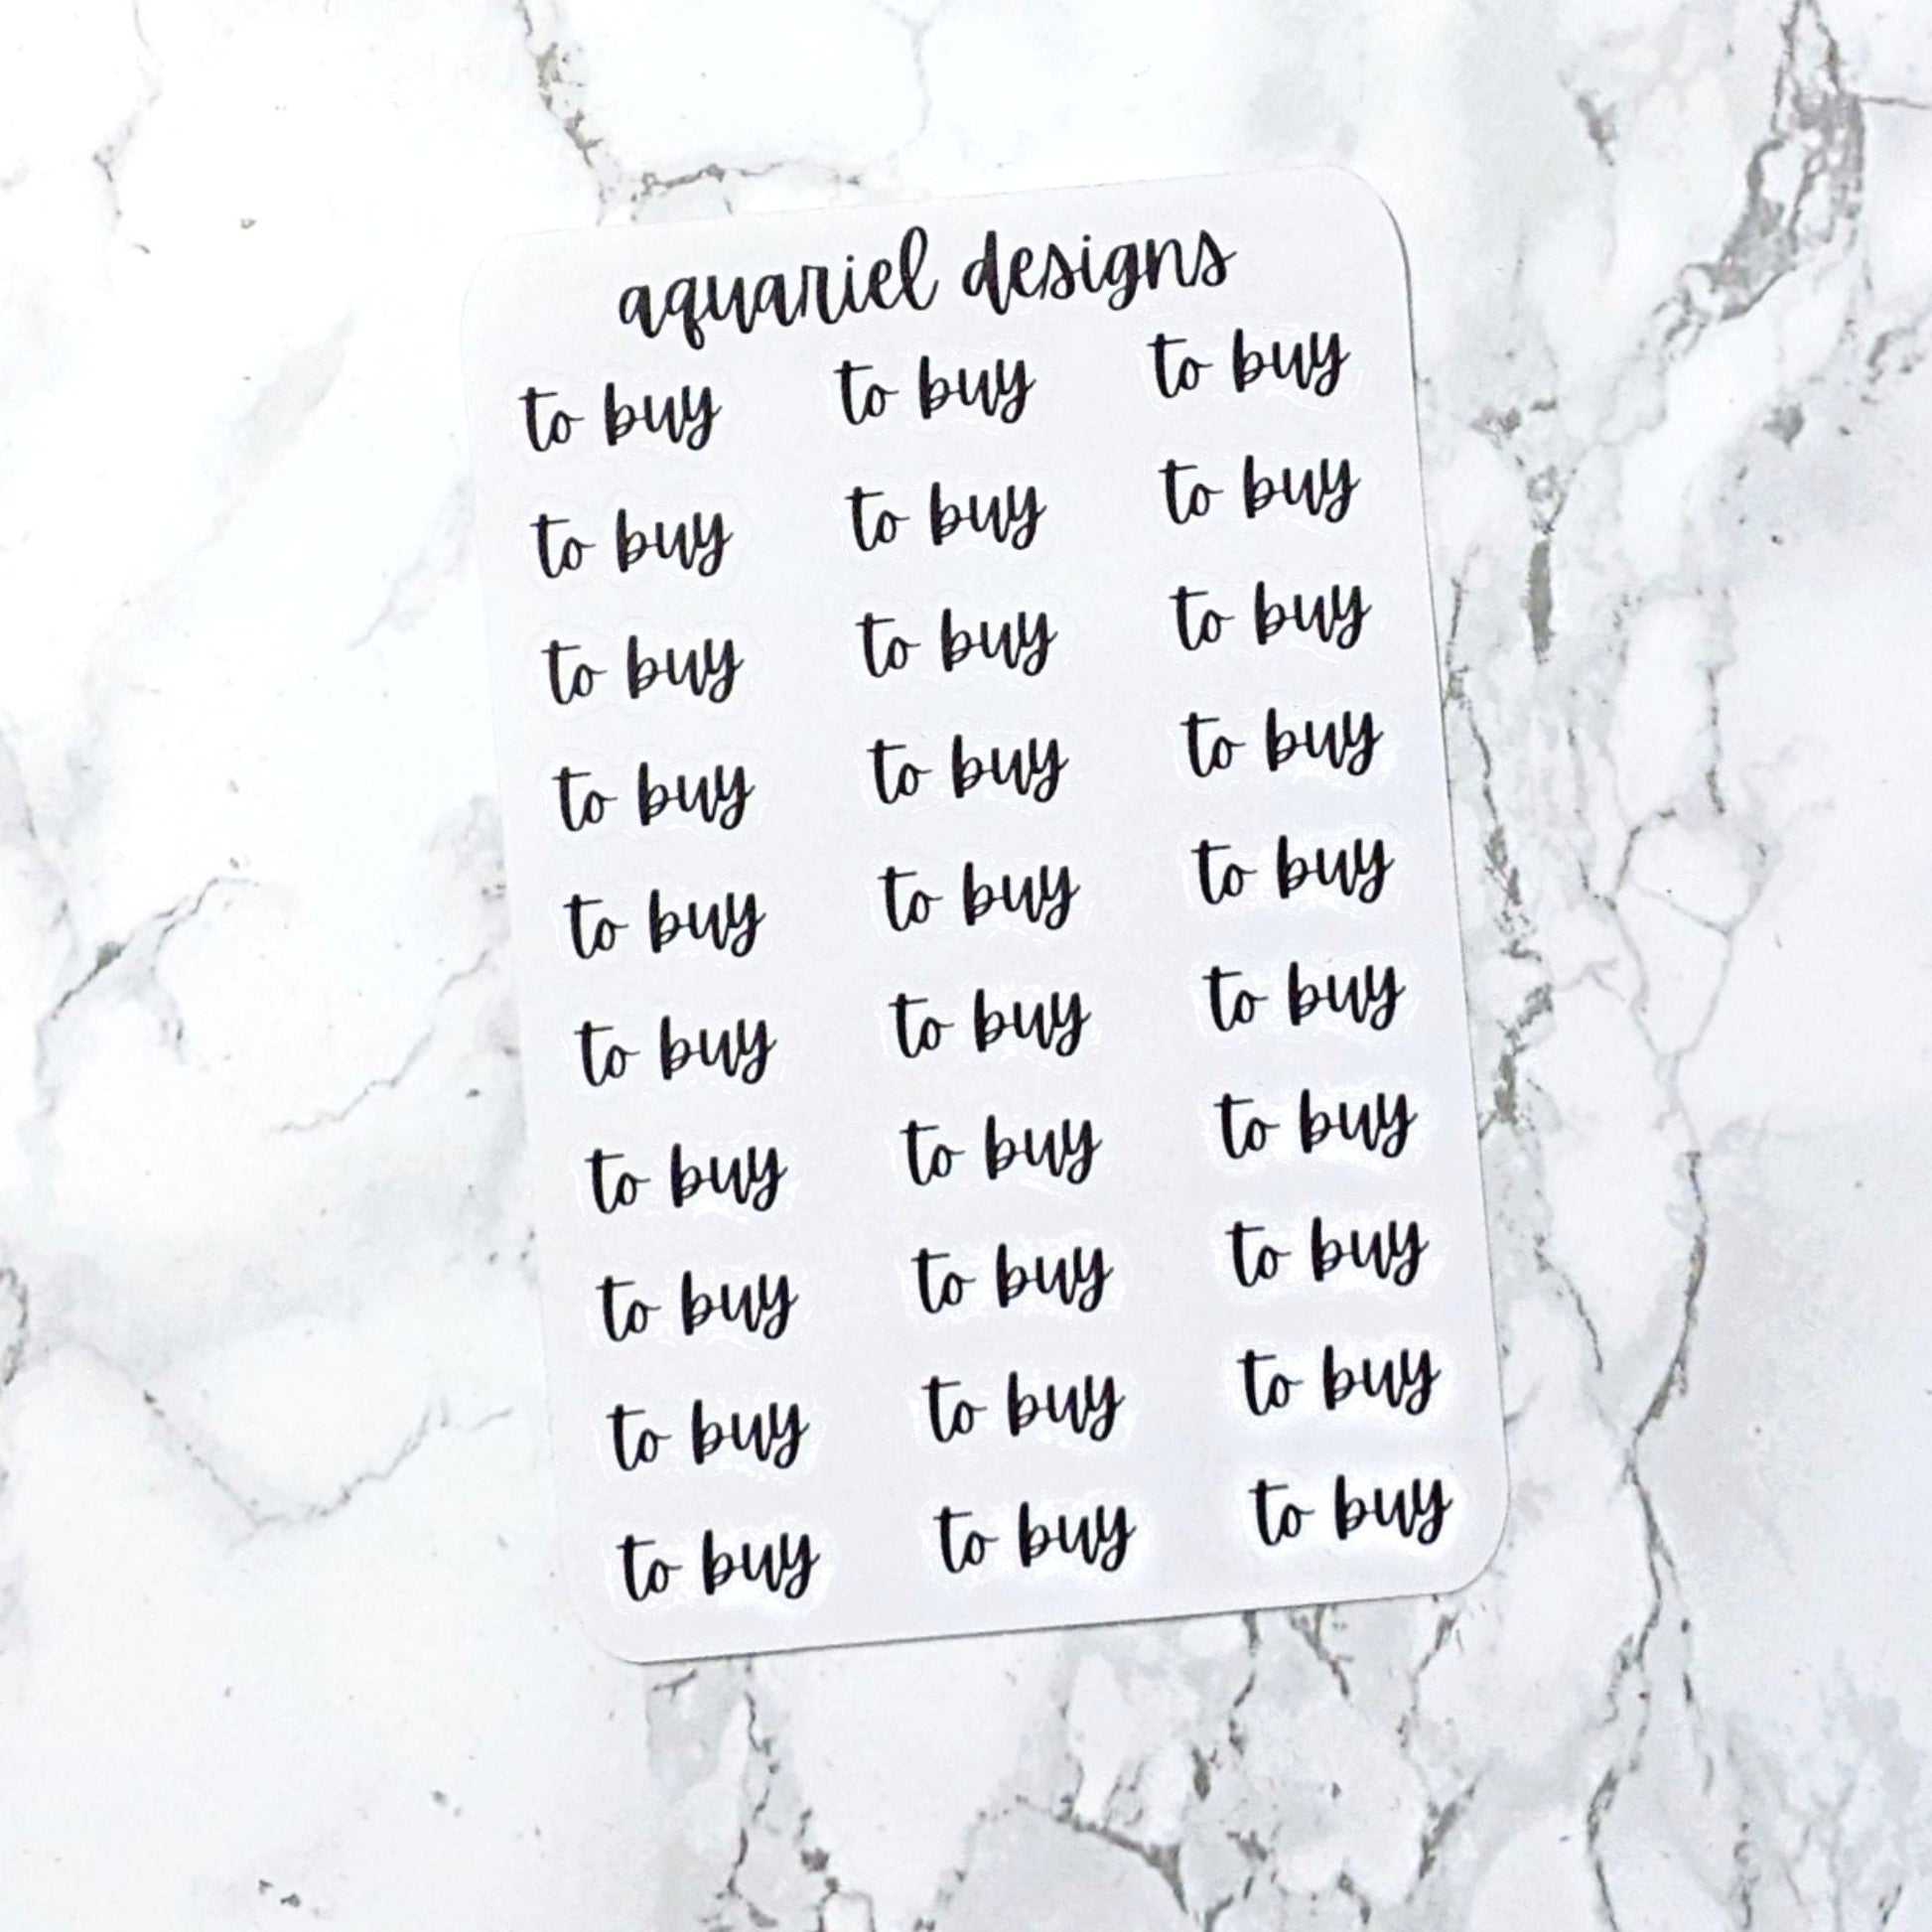 aquariel designs
to buy to buy to buy
to buy to buy to buy
to buy to buy to buy
to buy to buy to buy
to buy to buy to buy
to buy to buy to buy
to buy to buy to buy
to buy to buy to buy
to buy to buy to buy
to buy to buy to buy